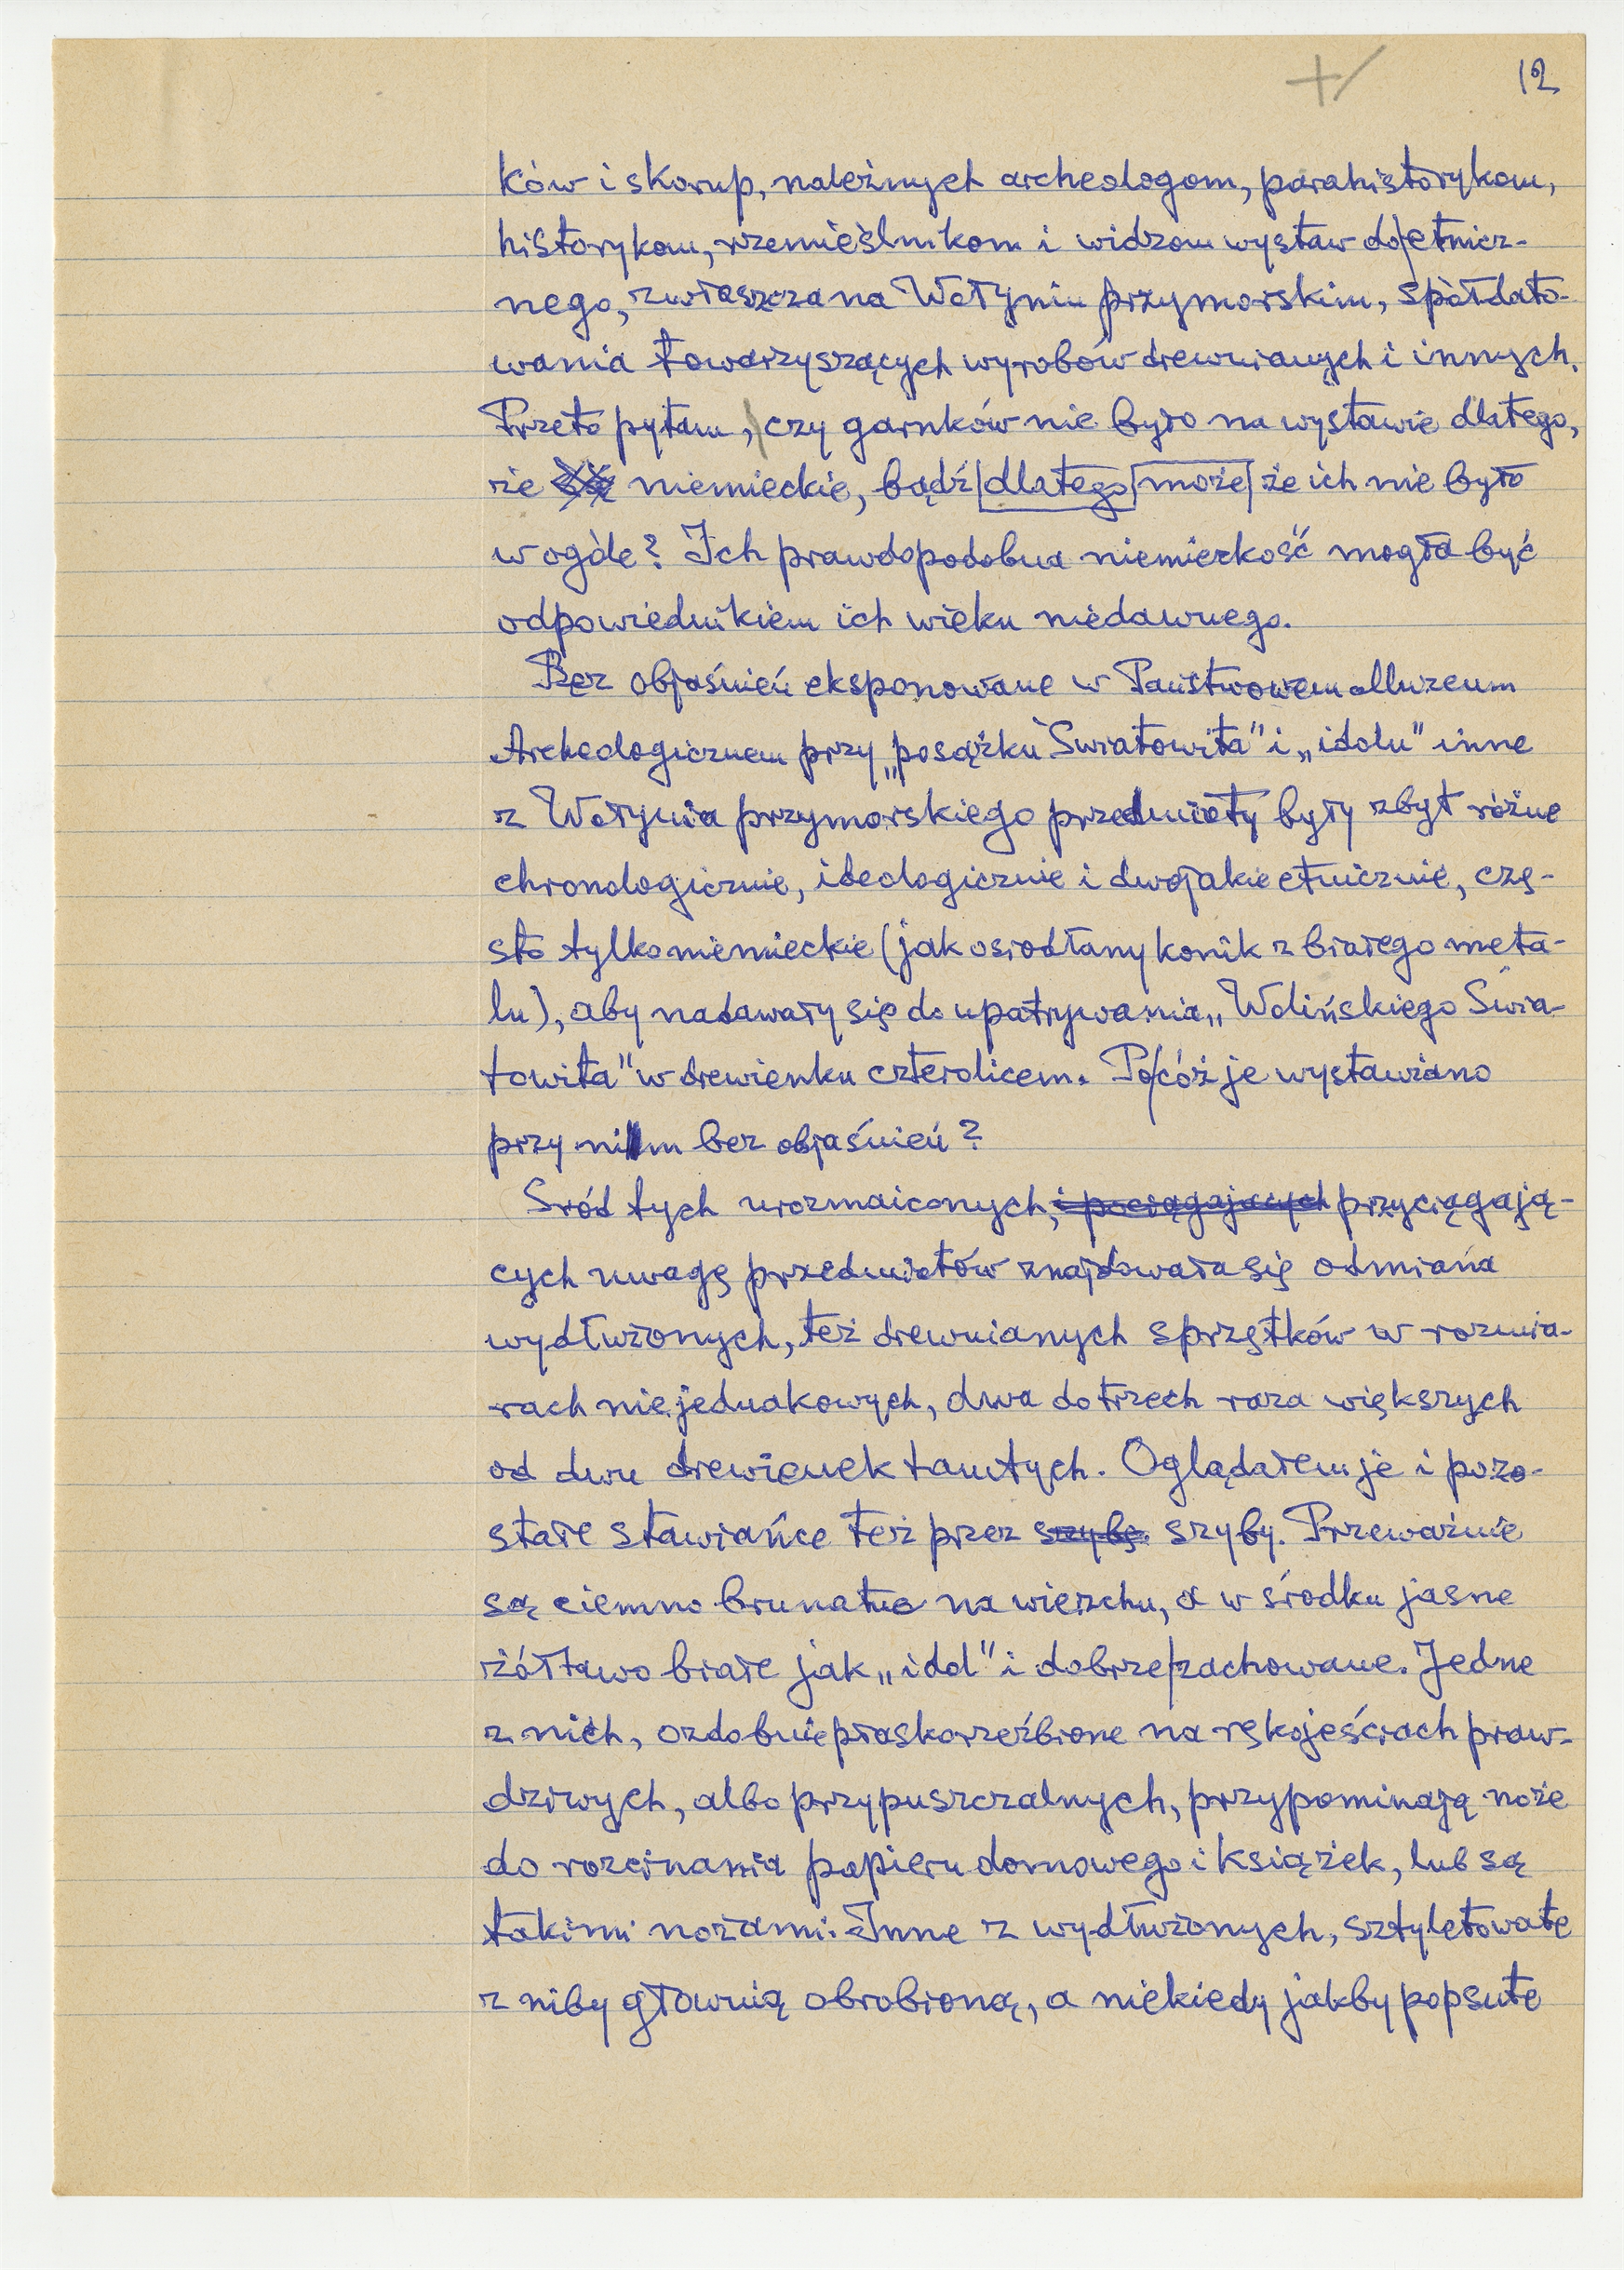 12
ków i skorup, należnych archeologom, parahistorykom,
historykom, rzemieślnikom i widzom wystaw do etnicz-
nego, zwłaszcza na Wołyniu przymorskim, spółdato-
wania towarzyszących wyrobów drewnianych i innych.
Przeto pytam, czy garnków nie było na wystawie dlatego,
że są niemieckie, bądź dlatego może że ich nie było
w ogóle? Ich prawdopodobna niemieckość mogła być
odpowiednikiem ich wieku niedawnego.
Bez objaśnień eksponowane w Państwowem Muzeum
Archeologicznem przy „posążku Światowita" i „idolu" inne
z Wołynia przymorskiego przedmioty były zbyt różne
chronologicznie, ideologicznie i dwojakie etnicznie, czę-
sto tylko niemieckie (jak osiodłany konik z białego meta-
lu), aby nadawały się do upatrywania „Wolińskiego Świa-
towita" w drewienku czterolicem. Po cóż je wystawiano
przy nim bez objaśnień?
Sród tych urozmaiconych, i pociągających przyciągają-
cych uwagę przedmiotów znajdowała się odmiana
wydłużonych, też drewnianych sprzętków w rozmia-
rach niejednakowych, dwa do trzech raza większych
od dwu drewienek tamtych. Oglądałem je i pozo-
stałe stawiańce też przez szybę. szyby. Przeważnie
są ciemno brunatne na wierzchu, a w środku jasne
żółtawo białe jak „idol" i dobrze zachowane. Jedne
z nich, ozdobnie płaskorzeźbione na rękojeściach praw-
dziwych, albo przypuszczalnych, przypominają noże
do rozcinania papieru domowego i książek, lub są
takimi nożami. Inne z wydłużonych, sztyletowate
z niby głownią obrobioną, a niekiedy jakby popsute